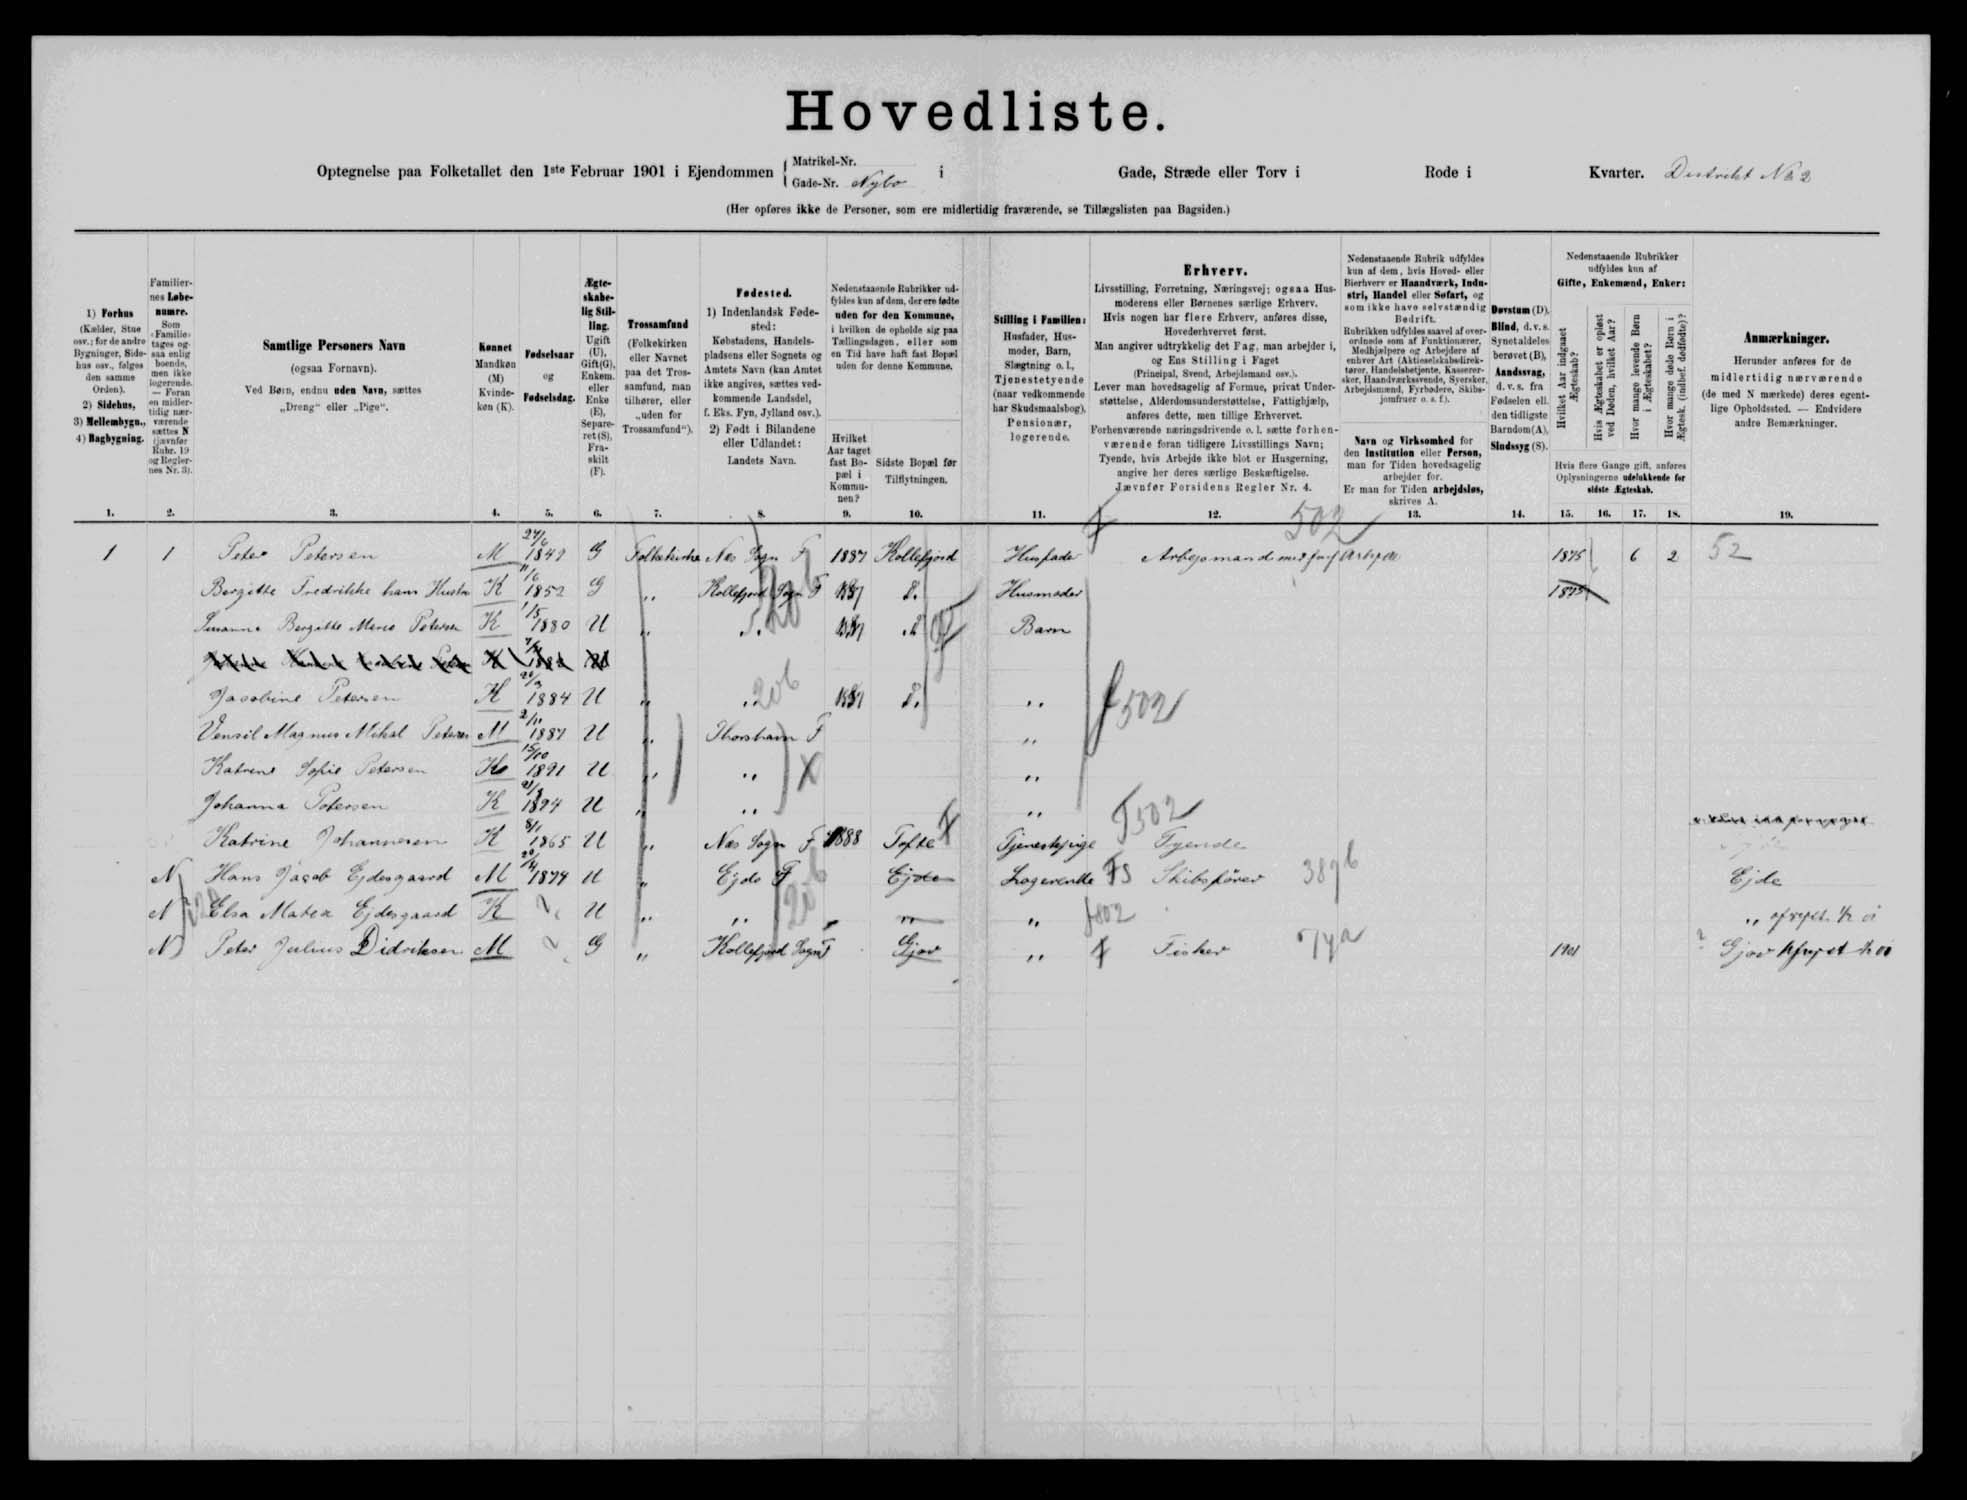 Hovedliste.
Optegnelse paa Folketallet den 1ste Februar 1901 i Ejendommen { Matrikel-Nr. Gade-Nr. Nybo i Gade, Stræde eller Torv i Rode i Kvarter. Distrikt No 2
(Her opføres ikke de Personer, som ere midlertidig fraværende, se Tillægslisten paa Bagsiden.)
1) Forhus
(Kælder, Stue
osv.; for de andre
Bygninger, Side-
hus osv., følges
den samme
Orden).
2) Sidehus,
3) Mellembygn.,
4) Bagbygning.
Familier-
nes Løbe-
numre.
Som
«Familie»
tages og-
saa enlig
boende,
men ikke
logerende.
— Foran
en midler-
tidig nær-
værende
sættes N
(jævnfør
Rubr. 19
og Regler-
nes Nr. 3).
Samtlige Personers Navn
(ogsaa Fornavn).
Ved Børn, endnu uden Navn, sættes
„Dreng“ eller „Pige“.
Kønnet
Mandkøn
(M)
Kvinde-
køn (K).
Fødselsaar
og
Fødselsdag.
Ægte-
skabe-
lig Stil-
ling.
Ugift
(U),
Gift(G),
Enkem.
eller
Enke
(E),
Separe-
ret (S),
Fra-
skilt
(F).
Trossamfund
(Folkekirken
eller Navnet
paa det Tros-
samfund, man
tilhører, eller
„uden for
Trossamfund“).
Fødested.
1) Indenlandsk Føde-
sted:
Købstadens, Handels-
pladsens eller Sognets og
Amtets Navn (kan Amtet
ikke angives, sættes ved-
kommende Landsdel,
f. Eks. Fyn, Jylland osv.).
2) Født i Bilandene
eller Udlandet:
Landets Navn.
Nedenstaaende Rubrikker ud-
fyldes kun af dem, der ere fødte
uden for den Kommune,
i hvilken de opholde sig paa
Tællingsdagen, eller som
en Tid have haft fast Bopæl
uden for denne Kommune.
Hvilket
Aar taget
fast Bo-
pæl i
Kommu-
nen?
Sidste Bopæl før
Tilflytningen.
Stilling i Familien:
Husfader, Hus-
moder, Barn,
Slægtning o. l.,
Tjenestetyende
(naar vedkommende
har Skudsmaalsbog),
Pensionær,
logerende.
Erhverv.
Livsstilling, Forretning, Næringsvej; ogsaa Hus-
moderens eller Børnenes særlige Erhverv.
Hvis nogen har flere Erhverv, anføres disse,
Hovederhvervet først.
Man angiver udtrykkelig det Fag, man arbejder i,
og Ens Stilling i Faget
(Principal, Svend, Arbejdsmand osv.).
Lever man hovedsagelig af Formue, privat Under-
støttelse, Alderdomsunderstøttelse, Fattighjælp,
anføres dette, men tillige Erhvervet.
Forhenværende næringsdrivende o. l. sætte forhen-
værende foran tidligere Livsstillings Navn;
Tyende, hvis Arbejde ikke blot er Husgerning,
angive her deres særlige Beskæftigelse.
Jævnfør Forsidens Regler Nr. 4.
Nedenstaaende Rubrik udfyldes
kun af dem, hvis Hoved- eller
Bierhverv er Haandværk, Indu-
stri, Handel eller Søfart, og
som ikke have selvstændig
Bedrift.
Rubrikken udfyldes saavel af over-
ordnede som af Funktionærer,
Medhjælpere og Arbejdere af
enhver Art (Aktieselskabsdirek-
tører, Handelsbetjente, Kasserer-
sker, Haandværkssvende, Syersker,
Arbejdsmænd, Fyrbødere, Skibs-
jomfruer o. s. f.).
Navn og Virksomhed for
den Institution eller Person,
man for Tiden hovedsagelig
arbejder for.
Er man for Tiden arbejdsløs,
skrives A.
Døvstum (D),
Blind, d. v. s.
Synet aldeles
berøvet (B),
Aandssvag,
d. v. s. fra
Fødselen ell.
den tidligste
Barndom (A),
Sindssyg (S).
Nedenstaaende Rubrikker
udfyldes kun af
Gifte, Enkemænd, Enker:
Hvilket Aar indgaaet
Ægteskab?
Hvis Ægteskabet er opløst
ved Døden, hvilket Aar?
Hvor mange levende Børn
i Ægteskabet?
Hvor mange døde Børn i
Ægtesk. (indbef. dødfødte)?
Hvis flere Gange gift, anføres
Oplysningerne udelukkende for
sidste Ægteskab.
Anmærkninger.
Herunder anføres for de
midlertidig nærværende
(de med N mærkede) deres egent-
lige Opholdssted. — Endvidere
andre Bemærkninger.
1. 2. 3. 4. 5. 6. 7. 8. 9. 10. 11. 12. 13. 14. 15. 16. 17. 18. 19.
502
1 1 Peter Petersen M 27/6 1849 G Folkekirke Næs Sogn F 1887 Kollefjord Husfader Arbejsmand 1875 6 2 52
Bergitte Fredrikke hans Hustru K 11/6 1852 G „ Kollefjord Sogn F 1887 d. Husmoder 1875
Susanna Bergitte Marie Petersen K 1880 U „ „ 1887 d. Barn
Jacobine Petersen K 1884 U „ „ 206 1887 d. „ 502
Vensil Magnus Mikal Petersen M 2/11 1887 U „ Thorshavn F „
Katrine Sofie Petersen K 15/10 1891 U „ „ X „
Johanna Petersen K 1894 U „ „ „
Katrine Johannesen K 8/1 1865 U „ Næs Sogn F 1888 Tofte Tjenestepige F502 Tyende
N Hans Jacob Ejdesgaard M 1874 U „ Ejde F Ejde Logerende FS Skibsfører 389b Ejde
N Elsa Malea Ejdesgaard K U „ „ 206 „ „ „
N Peter Julius Didriksen M G „ Kollefjord Sogn F Gjov „ Fisker 1901 Gjov